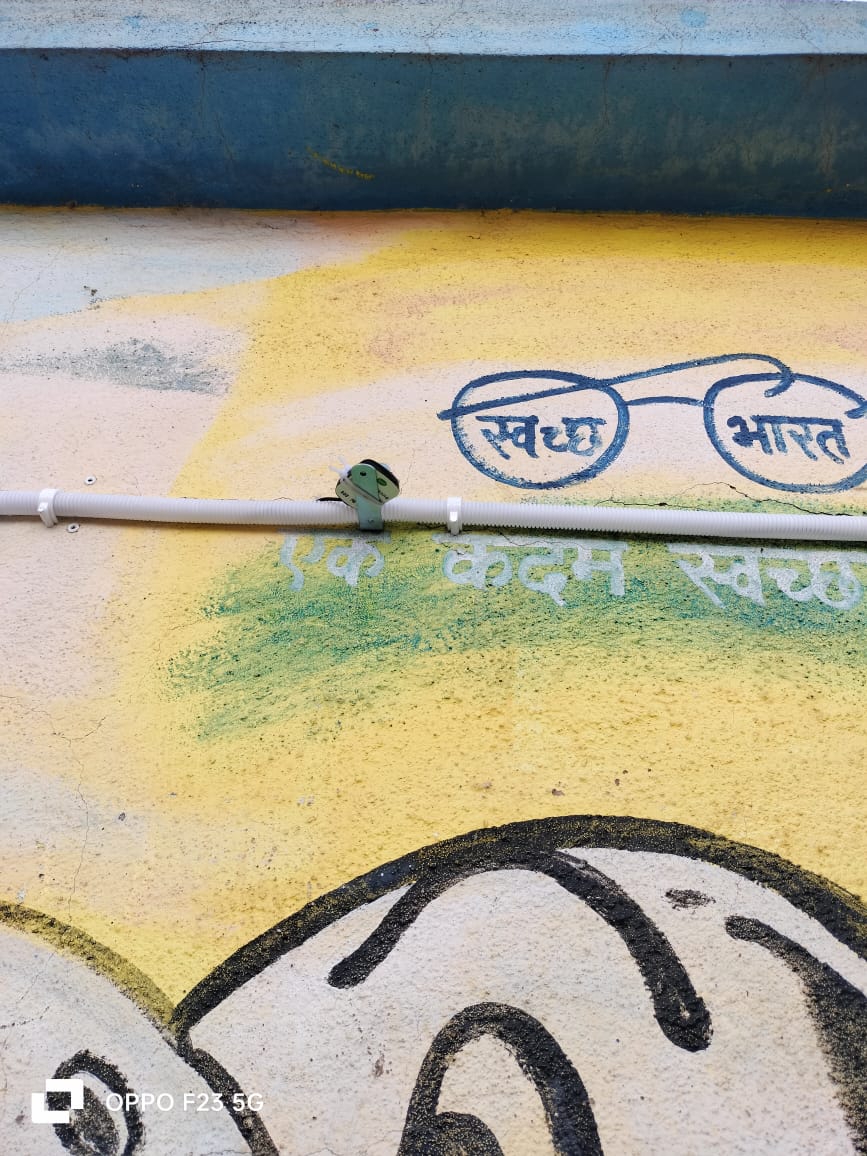 स्वच्छ भारत
एक कदम स्वच्छ
OPPO F23 5G